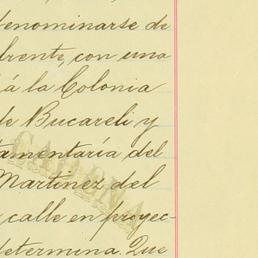 denominarse de
frente, con una
á la Colonia
de Bucareli y
tamentaría del
Martinez del
calle en proyec-
determina. Que
CADENA